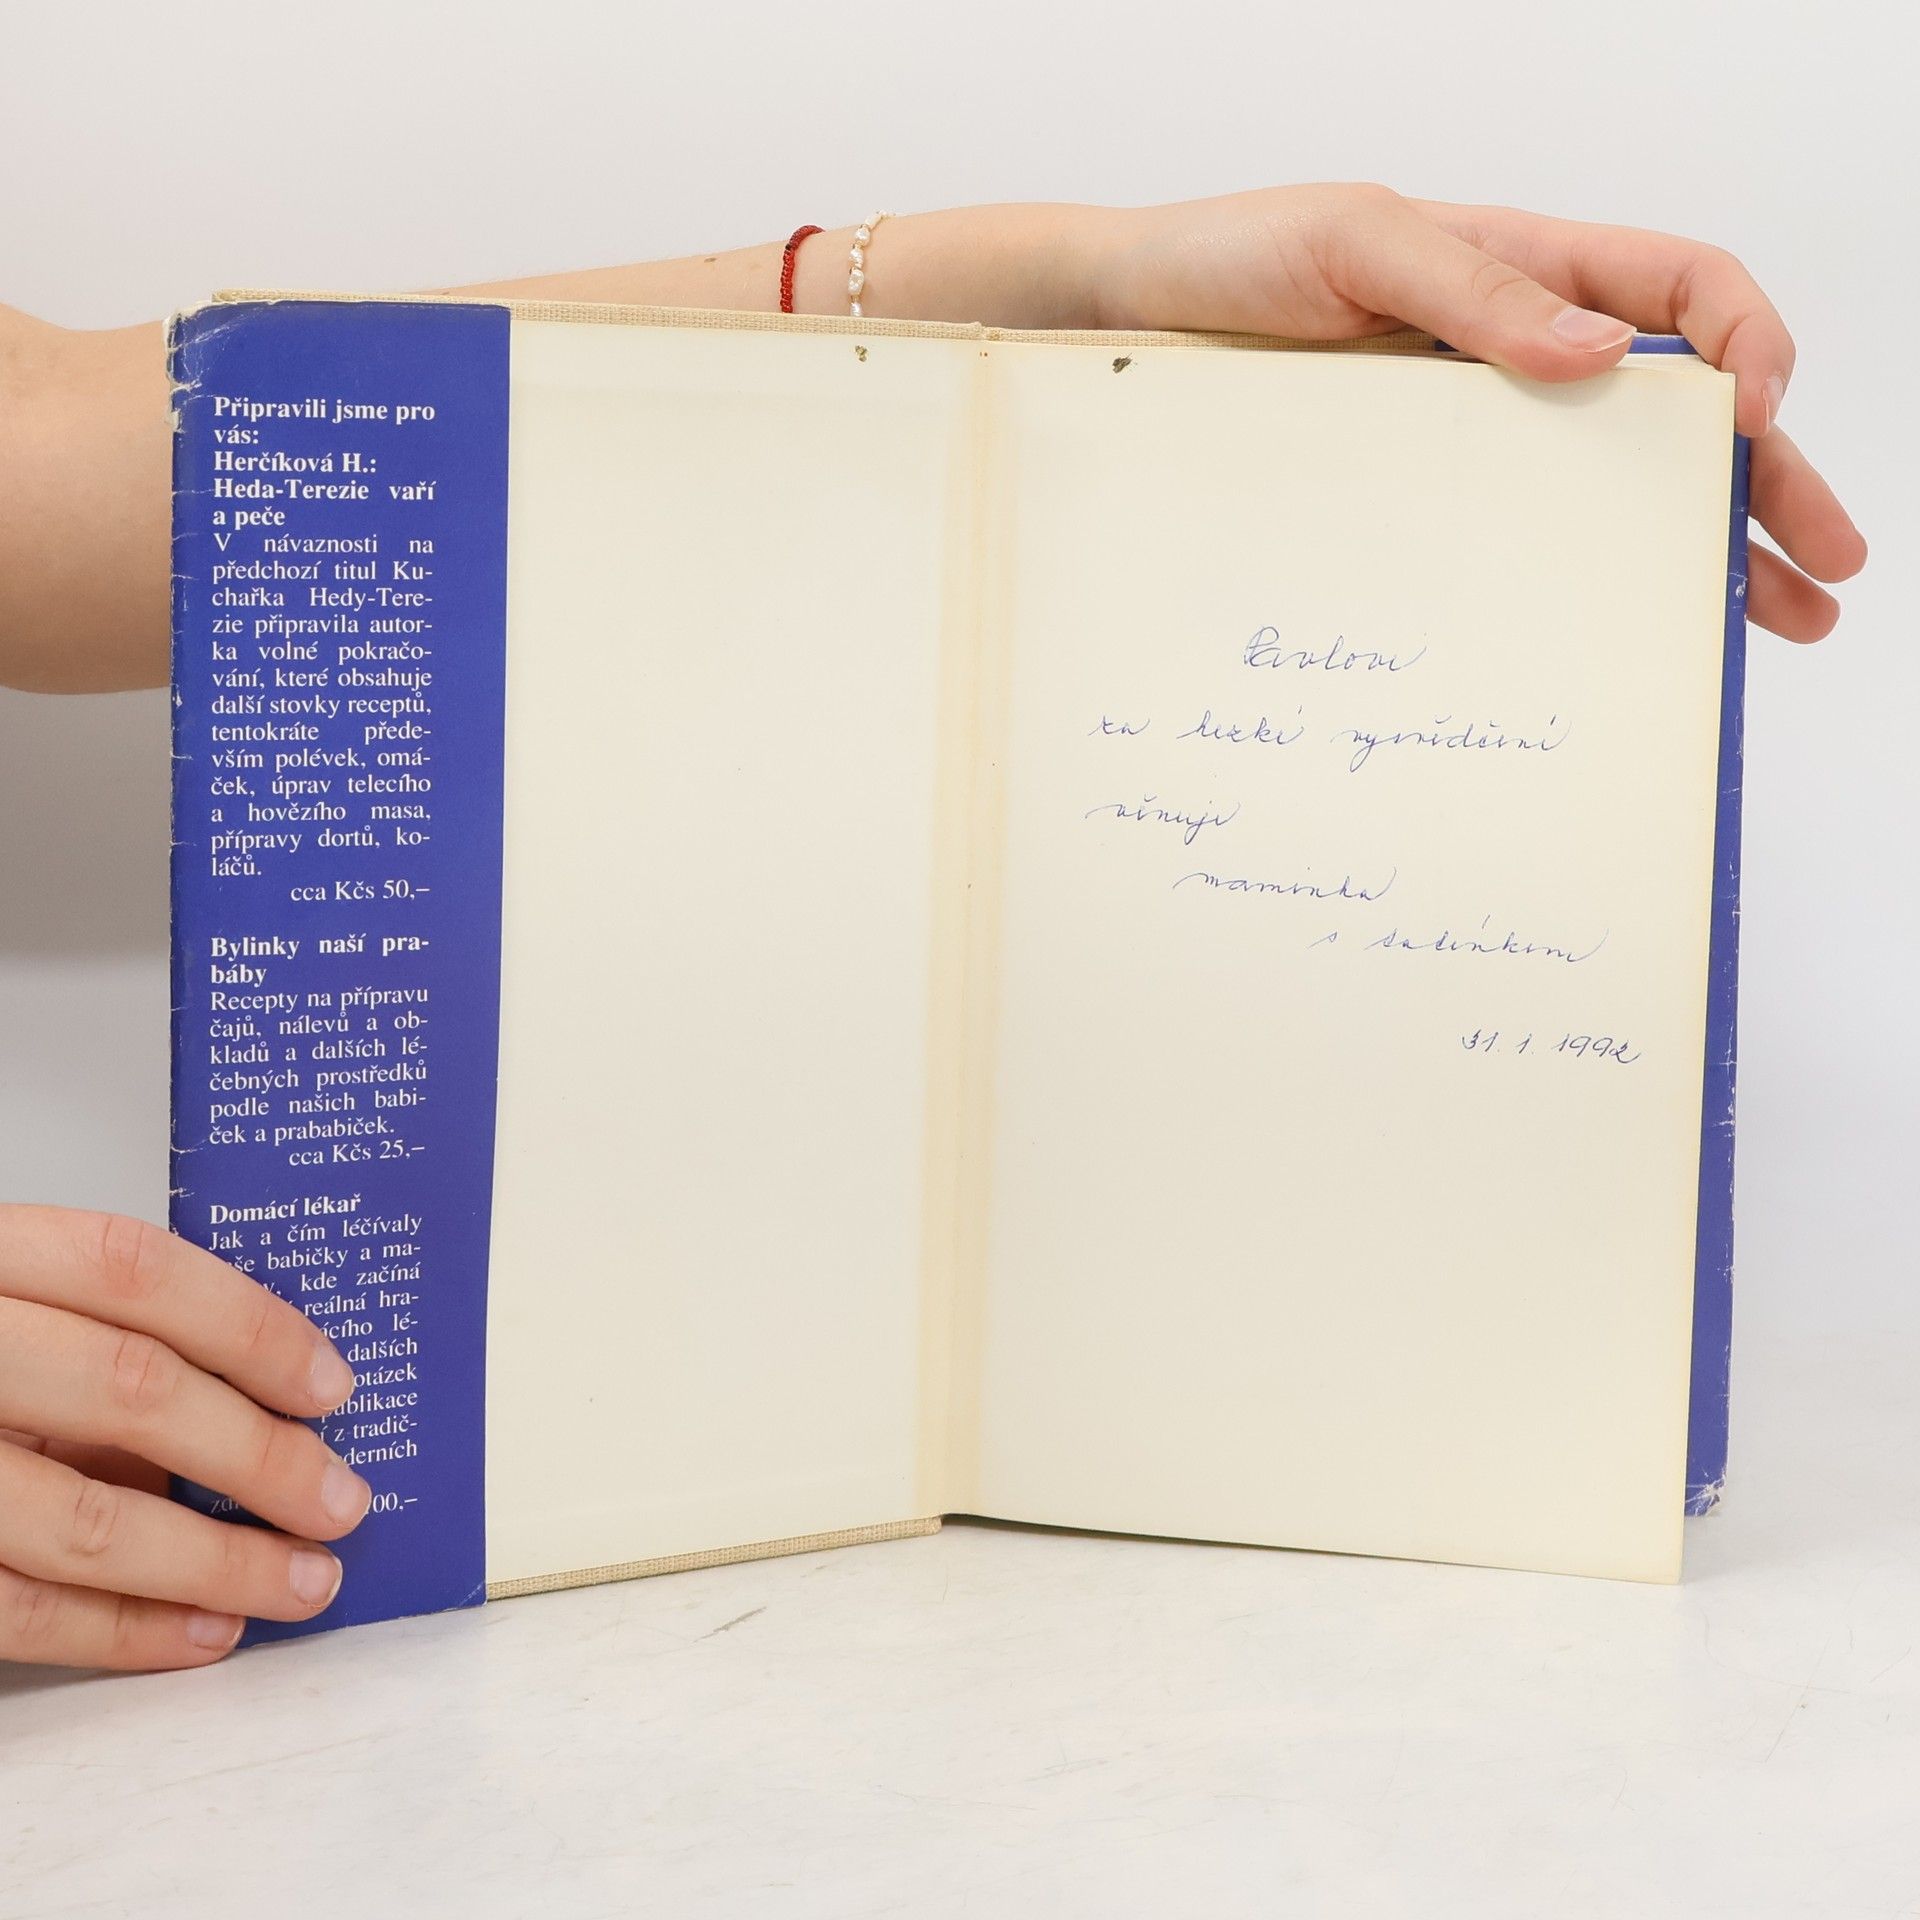 Připravili jsme pro
vás:
Herčíková H.:
Heda-Terezie vaří
a peče
V návaznosti na
předchozí titul Ku-
chařka Hedy-Tere-
zie připravila autor-
ka volné pokračo-
vání, které obsahuje
další stovky receptů,
tentokráte přede-
vším polévek, omá-
ček, úprav telecího
a hovězího masa,
přípravy dortů, ko-
láčů.
cca Kčs 50,–
Bylinky naší pra-
báby
Recepty na přípravu
čajů, nálevů a ob-
kladů a dalších lé-
čebných prostředků
podle našich babi-
ček a prababiček.
cca Kčs 25,–
Domácí lékař
Jak a čím léčívaly
babičky a ma-
kde začíná
reálná hra-
lé-
dalších
otázek
publikace
z tradič-
00,–
Pavlovi
za hezké vysvědčení
věnuje
maminka
s tatínkem
31. 1. 1992